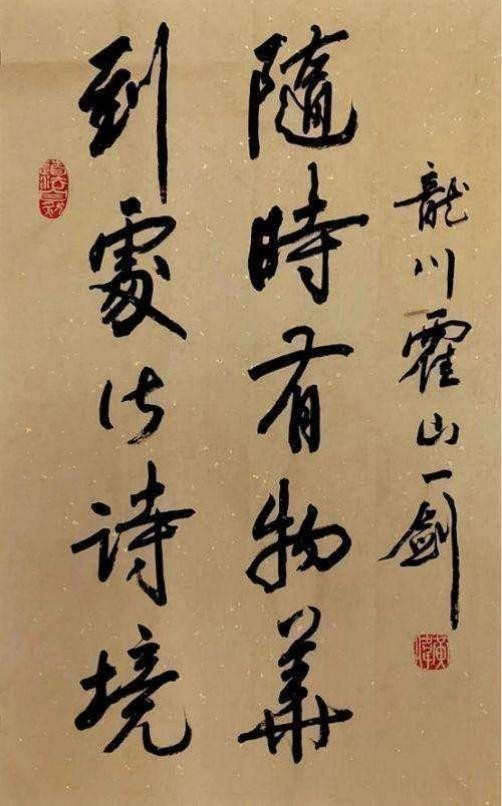 龍川霍山一劍
隨時有物華
到處皆詩境